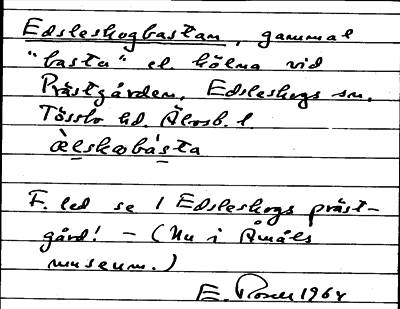 Edsleskogbastan, gammal
"basta" el. kölna vid
Prästgården, Edsleskogs sn,
Tössbo hd. Älvsb. l.
æ̀lskobásta
F. led se / Edsleskogs präst-
gård! - (Nu i Åmåls
museum.)
E. 1964